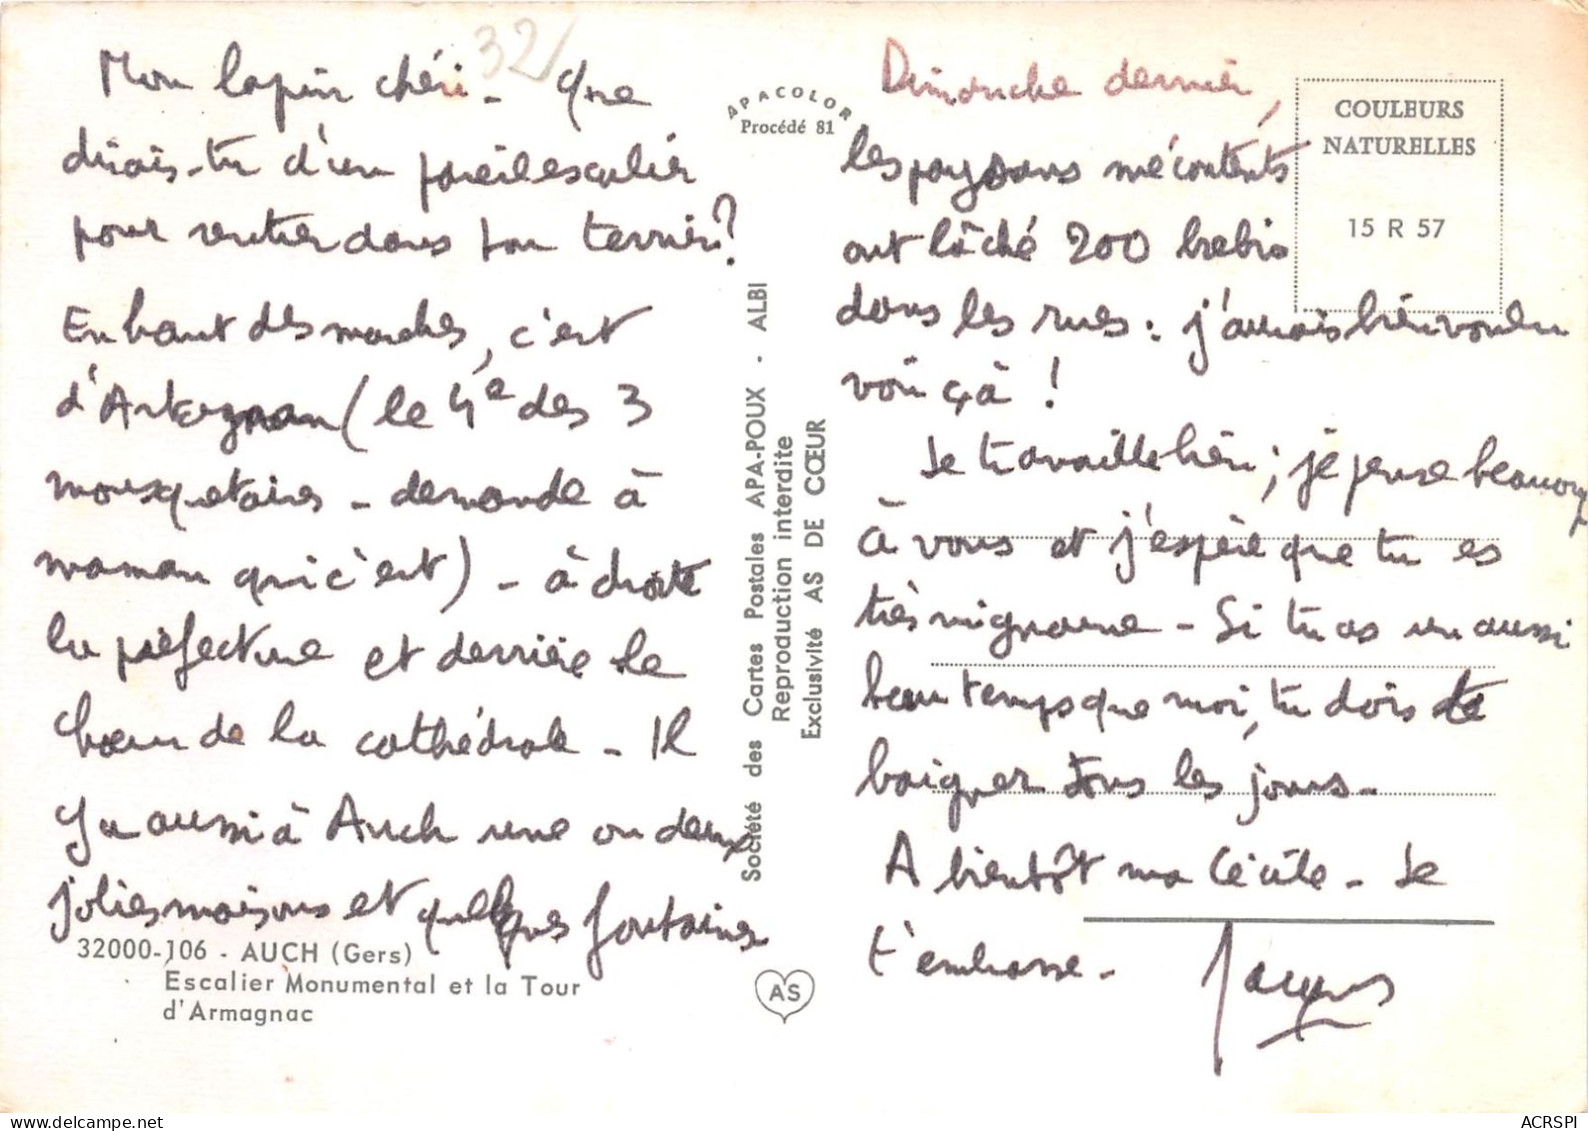 32
Mon lapin chéri - Que
dirais-tu d'un pareil escalier
pour rentrer dans ton terrier?
En haut des marches, c'est
d'Artagnan (le 4e des 3
mousquetaires - demande à
maman qui c'est) - à droite
la préfecture et derrière le
chœur de la cathédrale - Il
y a aussi à Auch une ou deux
jolies maisons et quelques fontaines
32000-106 - AUCH (Gers)
Escalier Monumental et la Tour
d'Armagnac
APACOLOR
Procédé 81
Société des Cartes Postales APA-POUX - ALBI
Reproduction interdite
Exclusivité AS DE CŒUR
AS
COULEURS
NATURELLES
15 R 57
Dimanche dernier,
les paysans mécontents
ont lâché 200 brebis
dans les rues : j'aurais bien voulu
voir çà !
Je travaille bien ; je pense beaucoup
à vous et j'espère que tu es
très mignonne - Si tu as un aussi
beau temps que moi, tu dois te
baigner tous les jours -
A bientôt ma Cécile - Je
t'embrasse - Jacques
ACRSPI